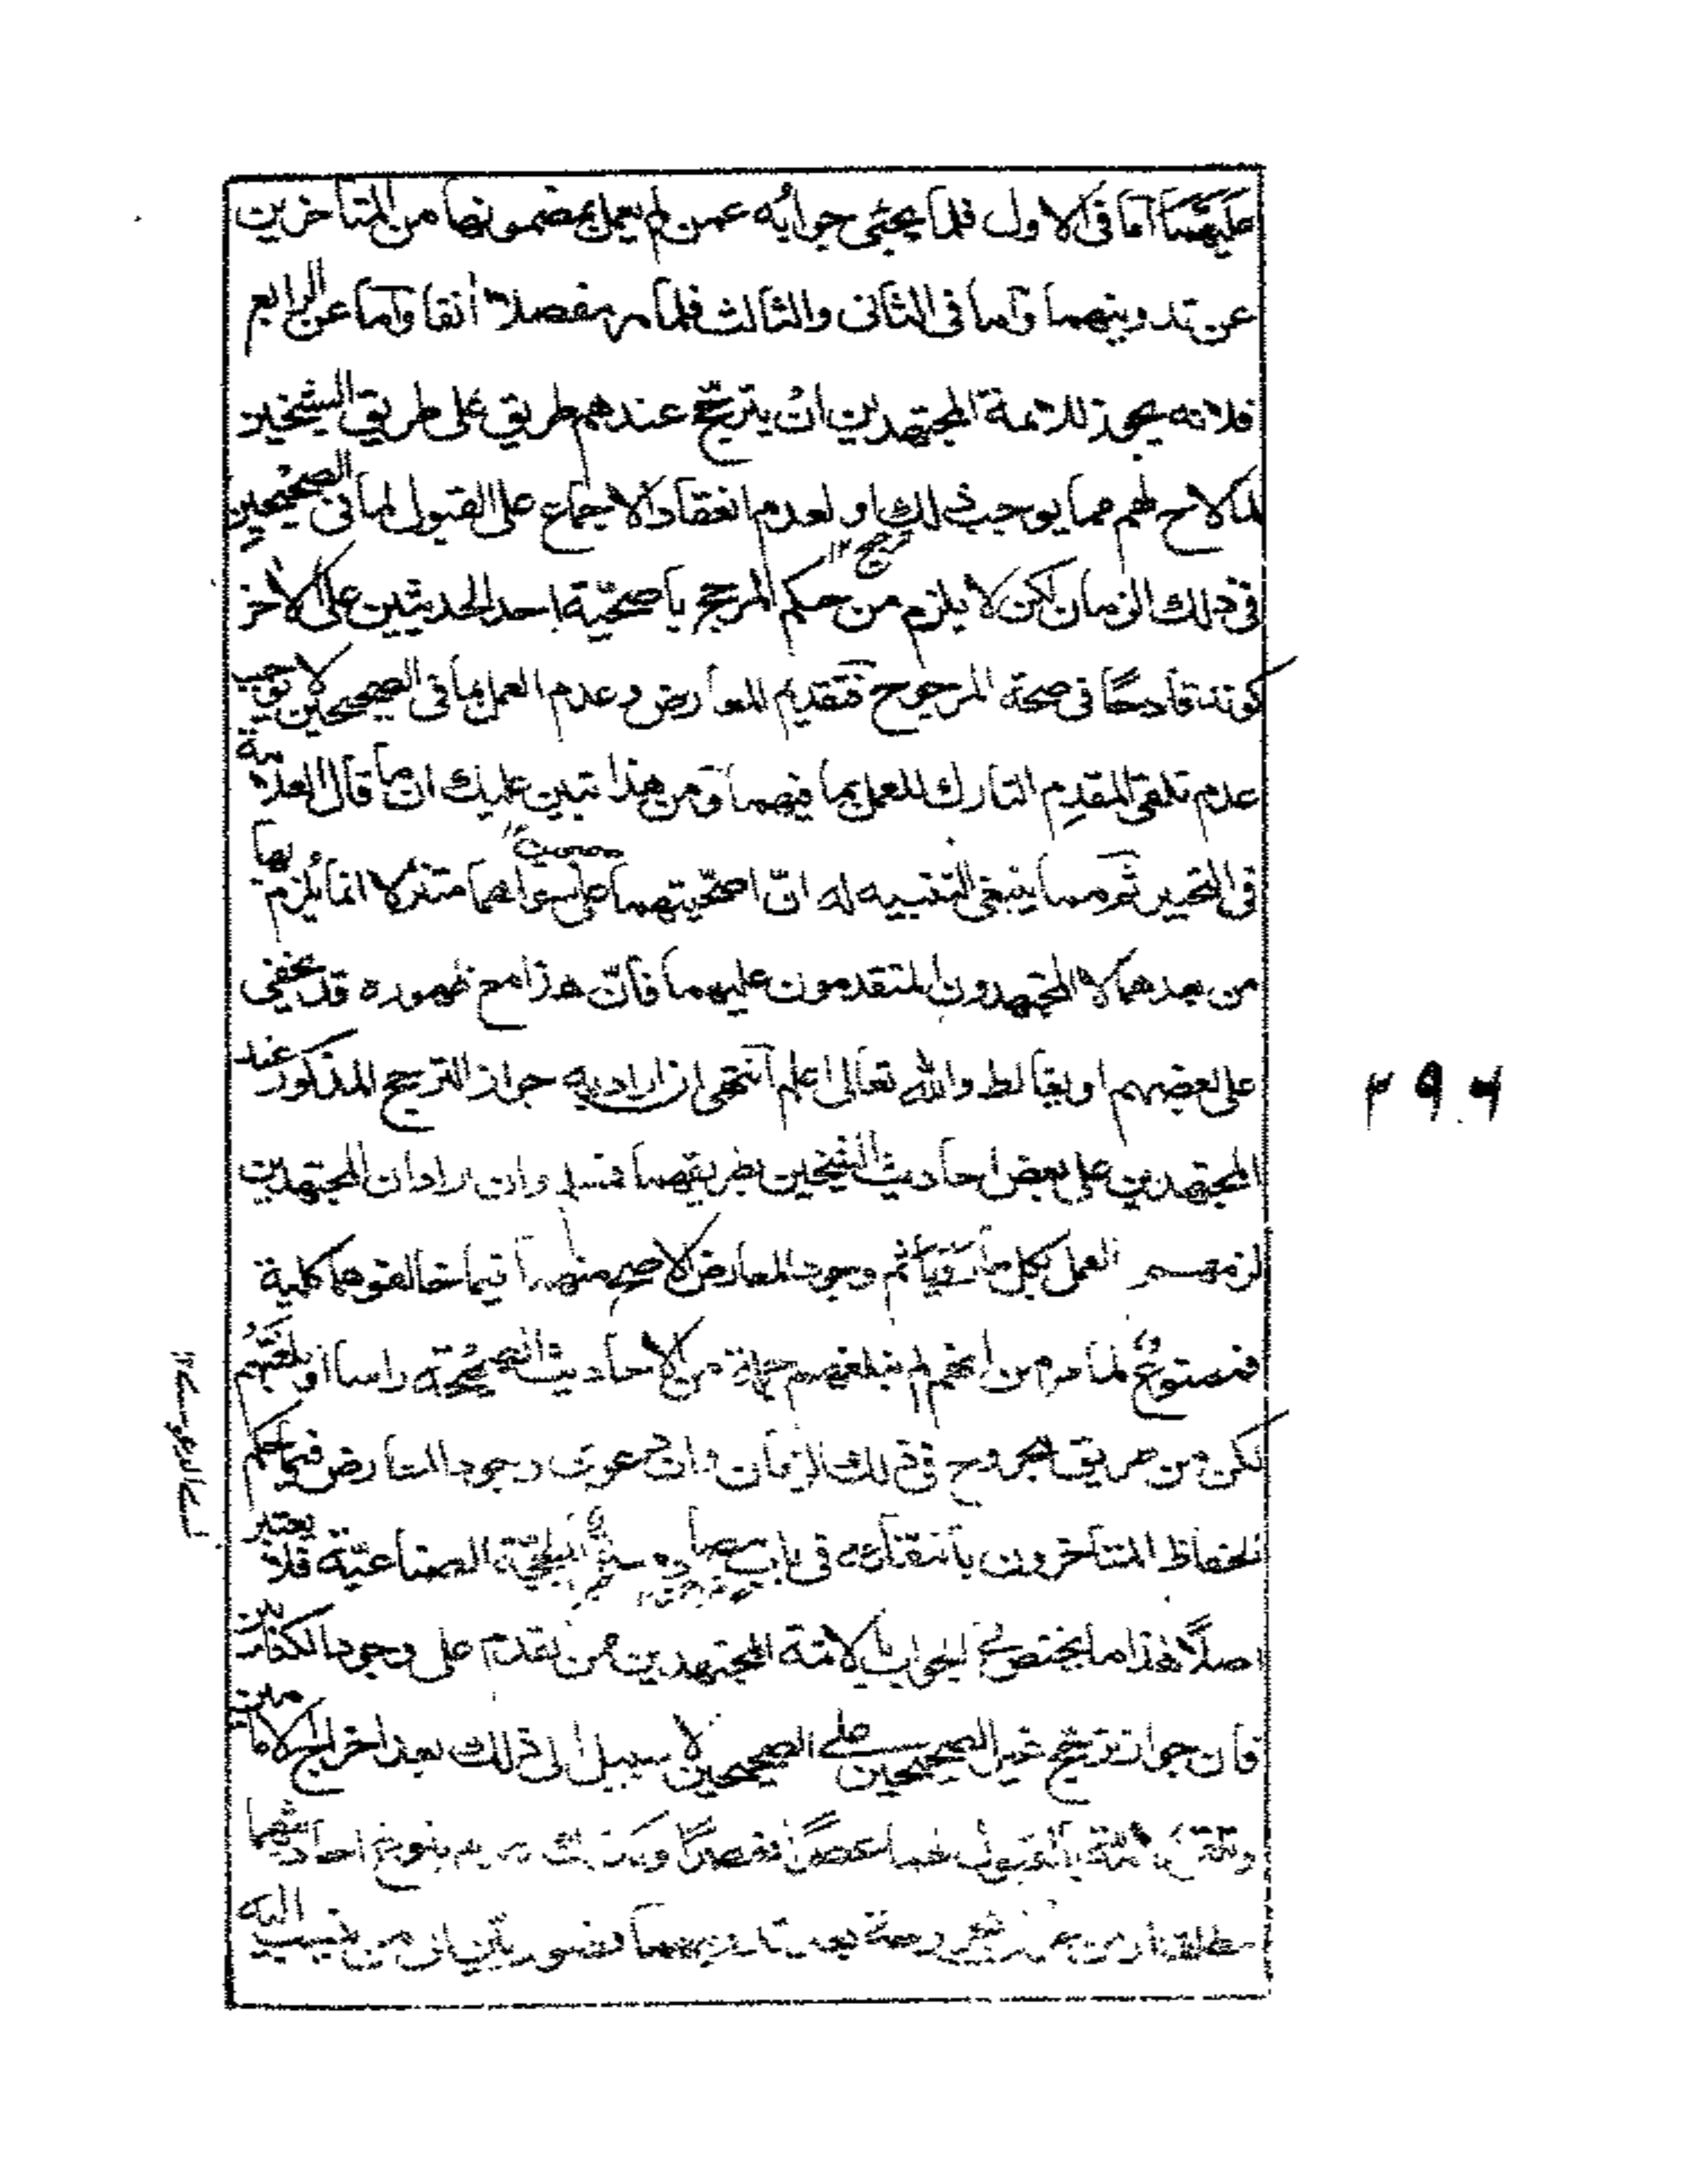 عليهما اما فى الاول فلما يجئ جوابه عمن لم يعمل بمضمونها من المتأخرين
عن تدوينهما واما فى الثانى والثالث فلما مر مفصلا آنفا واما عن الرابع
فلانه يجوز للائمة المجتهدين ان يترجح عندهم طريق على طريق الشيخين
لما لاح لهم مما يوجب ذلك او لعدم انعقاد الاجماع على القبول لما فى الصحيحين
فى ذلك الزمان لكن لا يلزم من حكم المرجح باصحّيّة احد الحديثين على الاخر
كونه قادحًا فى صحة المرجوح فتقديم المعارض وعدم العمل بما فى الصحيحين لا يوجب
عدم تلقى المقدِم التارك للعمل بما فيهما ومن هذا تبين عليك ان ما قال العلامة
فى التحرير ثم مما ينبغى التنبيه له انّ اصحّيتهما على ما سواهما متنزلا انما يُلزم بها
من بعدهما لا المجتهدون المتقدمون عليهما فانّ هذا مع ظهوره قد يخفى
على بعضهم او يغالط والله تعالى اعلم انتهى ان اراد به جواز الترجيح المذكور عند
المجتهدين على بعض احاديث الشيخين بطريقهما فمسلم وان اراد ان المجتهدين
لزمهم العمل بكل ما رويا ثم وجود المعارض الاصح منهما فيما خالفوهما كلية
فممنوع لما مر من انهم لم يبلغهم جملة من الاحاديث الصحيحة راسا او بلغتهم
لكن من طريق مجروح فى ذلك الزمان وان دعوى وجود المعارض فيما حكم
الحفاظ المتأخرون بانتفائه فى باب الصناعيّة فلا يعتبر
اصلًا هذا ما يختص من الجواب بالائمة المجتهدين ممن تقدم على وجود الكتابين
فان جواز ترجيح غير الصحيحين على الصحيحين لا سبيل الى ذلك بعد اخراج الامامين
وتلقى الامة بالقبول لهما عصرًا فعصرًا وكذلك عدم بلوغ احاديثهما
بعد تدوينهما من نسب اليه
٢٩٦